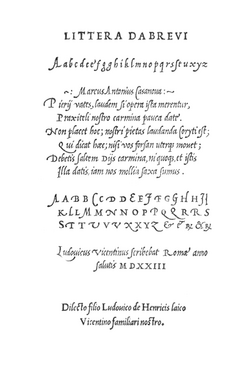 LITTERA DA BREVI
Aabcdeefgghiklmnopqrsstuxyz
~: Marcus Antonius Casanova :~
Pierij vates, laudem si opera ista merentur,
Praxiteli nostro carmina pauca date.
Non placet hoc; nostri pietas laudanda Coryti est;
Qui dicat haec; nisi vos forsan uterque mouet;
Debetis saltem Dijs carmina, ni quoque, et istis
Illa datis. iam nos mollia saxa sumus.
AABBCCDDEEFFGGHHJI
KLLMMNNOPPQQRRS
STTUVVXXYZ & & &
Ludouicus Vicentinus scribebat Romae anno
salutis MDXXIII
Dilecto filio Ludouico de Henricis laico
Vicentino familiari nostro.